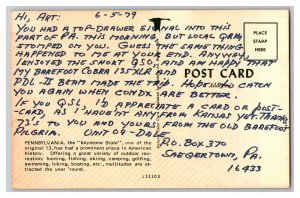 HI, ART: 6-5-79
YOU HAD A TOP-DRAWER SIGNAL INTO THIS
PART OF PA. THIS MORNING, BUT LOCAL QRM
STOMPED ON YOU. GUESS THE SAME THING
HAPPENED TO ME AT YOUR END. ANYWAY, I
ENJOYED THE SHORT QSO, AND AM HAPPY THAT
MY BAREFOOT COBRA 135 XLR AND
PDL-II BEAM MADE THE TRIP. HOPE WILL CATCH
YOU AGAIN WHEN CONDX ARE BETTER.
IF YOU QSL, I'D APPRECIATE A CARD OR POST-
CARD, AS I HAVEN'T ANY FROM KANSAS YET. THANKS,
73'S TO YOU AND YOURS FROM THE OLD BAREFOOT
PILGRIM. UNIT 09-DALE
PLACE
STAMP
HERE
POST CARD
P.O. BOX 370
SAEGERTOWN, PA.
16433
PENNSYLVANIA, the "Keystone State", one of the
original 13, has had a prominent place in American
history. Offering a great variety of outdoor rec-
reation; hunting, fishing, skiing, camping, golfing,
swimming, hiking, boating, etc., multitudes are at-
tracted the year 'round.
112103